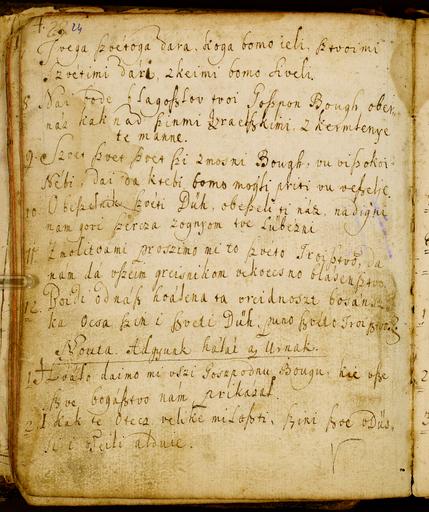 24
Tvega szvetoga dara, koga bomo ieli, sztvoimi
szvetimi dari, zkeimi bomo siveli.
8 Nai bode blagoszlov tvoi Goszpon Bough ober
náz kak nad szinmi Israelszkimi, z kermlenye
te manne.
9 Szvet szvet szvet szi zmosni Bough, vu viszokoi
Nébi, dai da ktebi bomo mogli priti vu veszelje
10 Obeszelnik szveti Dūh, obeszeli ti náz, nadigni
nam gori szercza zognyom tve lubezni
11 Zmolitvami proszimo mi to szveto Troisztvo, da
nam da vszeim greisnikom vekvecsno blásensztvo
12 Boidi odnász hválena ta vreidnoszt bosans
ka Ocsa szin i szveti Dūh, puno szveto Troisztvo
Nouta. Adgyunk hálát az Urnak.
1 Hválo daimo mi vszi Goszpodnu Bougu, kai vsze
szve bogasztvo nam prikázal.
2 I kak te Otecz velike miloszti, szini szve